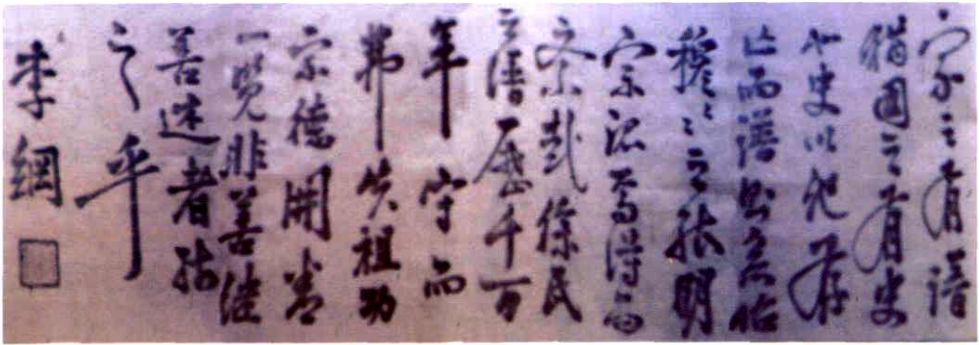 家之有譜
猶國之有史
也史以紀存
亡而譜
穆之明
宗派焉得而
紊哉徐氏
之譜歷千百
年守而
弗失祖功
宗德開卷
一覽非善繼
善述者能
之乎
李綱